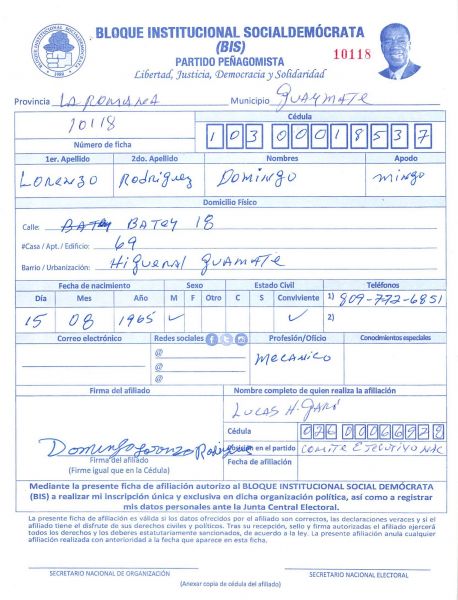 BLOQUE INSTITUCIONAL SOCIALDEMÓCRATA
(BIS)
PARTIDO PEÑAGOMISTA
Libertad, Justicia, Democracia y Solidaridad
BLOQUE INSTITUCIONAL SOCIALDEMÓCRATA
10118
Provincia LA ROMANA Municipio GUAYMATE
10118
Número de ficha
Cédula
103 0001853 7
1er. Apellido 2do. Apellido Nombres Apodo
LORENZO Rodríguez DOMINGO mingo
Domicilio Físico
Calle: BATEY BATEY 18
#Casa / Apt. / Edificio: 69
Barrio / Urbanización: HIGUERAL GUAMATE
Fecha de nacimiento Sexo Estado Civil Teléfonos
Día Mes Año M F Otro C S Conviviente 1) 809-772-6851
15 08 1965 ✓ ✓ 2)
Correo electrónico Redes sociales Profesión/Oficio Conocimientos especiales
@ MECANICO
@
@
Firma del afiliado Nombre completo de quien realiza la afiliación
LUCAS H.
Cédula
Domingo Lorenzo Rodríguez
Posición en el partido COMITE EJECUTIVO NAC
Firma del afiliado Fecha de afiliación
(Firme igual que en la Cédula)
Mediante la presente ficha de afiliación autorizo al BLOQUE INSTITUCIONAL SOCIAL DEMÓCRATA
(BIS) a realizar mi inscripción única y exclusiva en dicha organización política, así como a registrar
mis datos personales ante la Junta Central Electoral.
La presente ficha de afiliación es válida si los datos ofrecidos por el afiliado son correctos, las declaraciones veraces y si el
afiliado tiene el disfrute de sus derechos civiles y políticos. Tras su recepción, sello y firma autorizadas el afiliado ejercerá
todos los derechos y los deberes estatutariamente sancionados, de acuerdo a la ley. La presente afiliación anula cualquier
afiliación realizada con anterioridad a la fecha que aparece en esta ficha.
SECRETARIO NACIONAL DE ORGANIZACIÓN SECRETARIO NACIONAL ELECTORAL
(Anexar copia de cédula del afiliado)